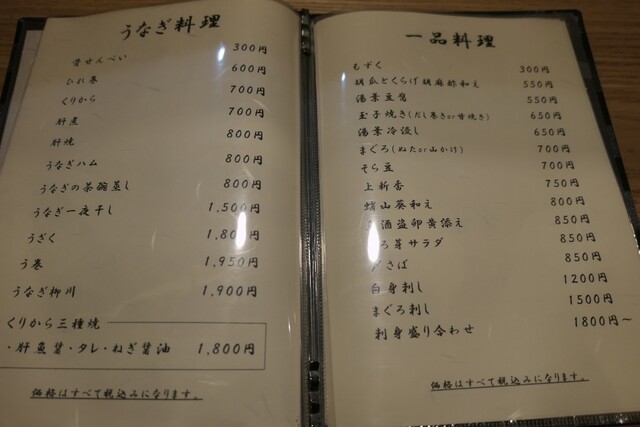 うなぎ料理
骨せんべい 300円
ひれ巻 600円
くりから 700円
肝煮 700円
肝焼 800円
うなぎハム 800円
うなぎの茶碗蒸し 800円
うなぎ一夜干し 1,500円
うざく 1,800円
う巻 1,950円
うなぎ柳川 1,900円
くりから三種焼
・肝魚醤・タレ・ねぎ醤油 1,800円
価格はすべて税込みになります。
一品料理
もずく 300円
胡瓜とくらげ胡麻酢和え 550円
湯葉豆腐 550円
玉子焼き(だし巻きor甘焼き) 650円
湯葉冷浸し 650円
まぐろ(ぬたor山かけ) 700円
そら豆 700円
上新香 750円
蛸山葵和え 800円
酒盗卵黄添え 850円
芽サラダ 850円
〆さば 850円
白身刺し 1200円
まぐろ刺し 1500円
刺身盛り合わせ 1800円～
価格はすべて税込みになります。